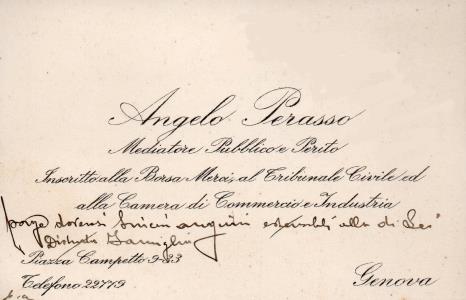 Angelo Perasso
Mediatore Pubblico e Perito
Inscritto alla Borsa Merci, al Tribunale Civile ed
alla Camera di Commercio e Industria
porge doverosi sinceri auguri estensibili alla di Lei
Distinta Famiglia
Piazza Campetto 9-33
Telefono 22779
Genova
p.a